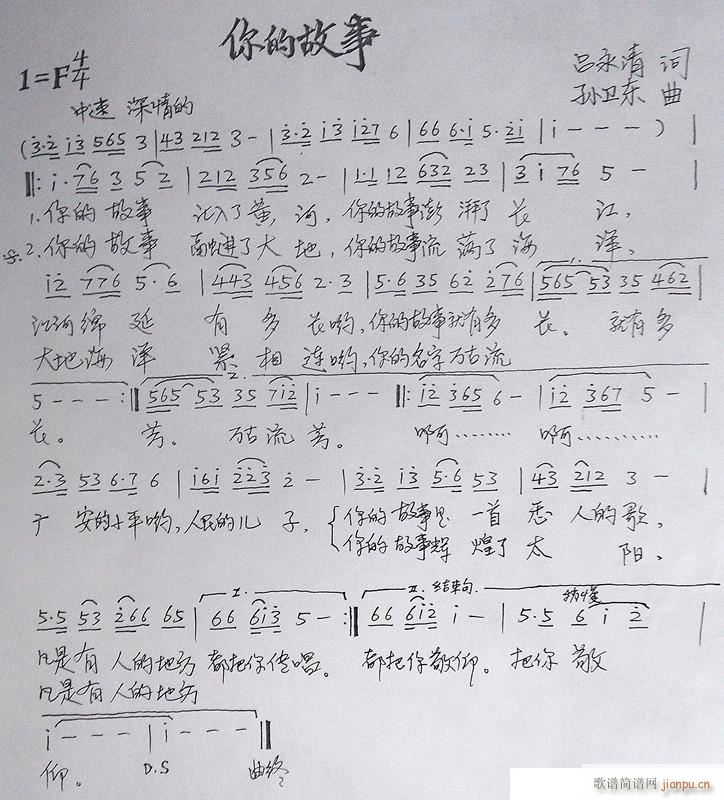 你的故事
1=F 4/4
吕永清 词
孙卫东 曲
中速 深情的
(3·2 i3 565 3 | 43 212 3 - | 3·2 i3 i27 6 | 66 6·i 5·2i | i - - - ) |
‖: i·76 3 5 2 | 212 356 2 - | 1·1 12 632 23 | 3 i 76 5 - |
1.你的 故事 汇入了黄 河, 你的故事澎 湃了 长 江,
2.你的 故事 融进了大 地, 你的故事流 荡了 海 洋,
i2 776 5·6 | 443 456 2·3 | 5·6 35 62 276 | 565 53 35 462 |
江河绵 延 有 多 长哟, 你的故事就有多 长。 就有多
大地海 洋 紧 相 连哟, 你的名字万古流
5 - - - :‖ 565 53 35 7i2 | i - - - ‖: i2 365 6 - | i2 367 5 - |
长。 芳。 万古流 芳。 啊……… 啊…………
2·3 53 6·7 6 | i6i 223 2 - | 3·2 i3 5·6 53 | 43 212 3 - |
安的 哟, 人民的儿 子, 你的 故事是 一首 人的歌,
你的 故事辉 煌了 太 阳,
5·5 53 266 65 | 66 6i3 5 - :‖ 66 6i2 i - | 5·5 6 i 2 |
I. II. 结束句
凡是有 人的地方 都把你传唱。 都把你敬仰。 把你 敬
凡是有 人的地方
i - - - | i - - - ‖
仰。 D.S 曲终
歌谱简谱网 jianpu.cn